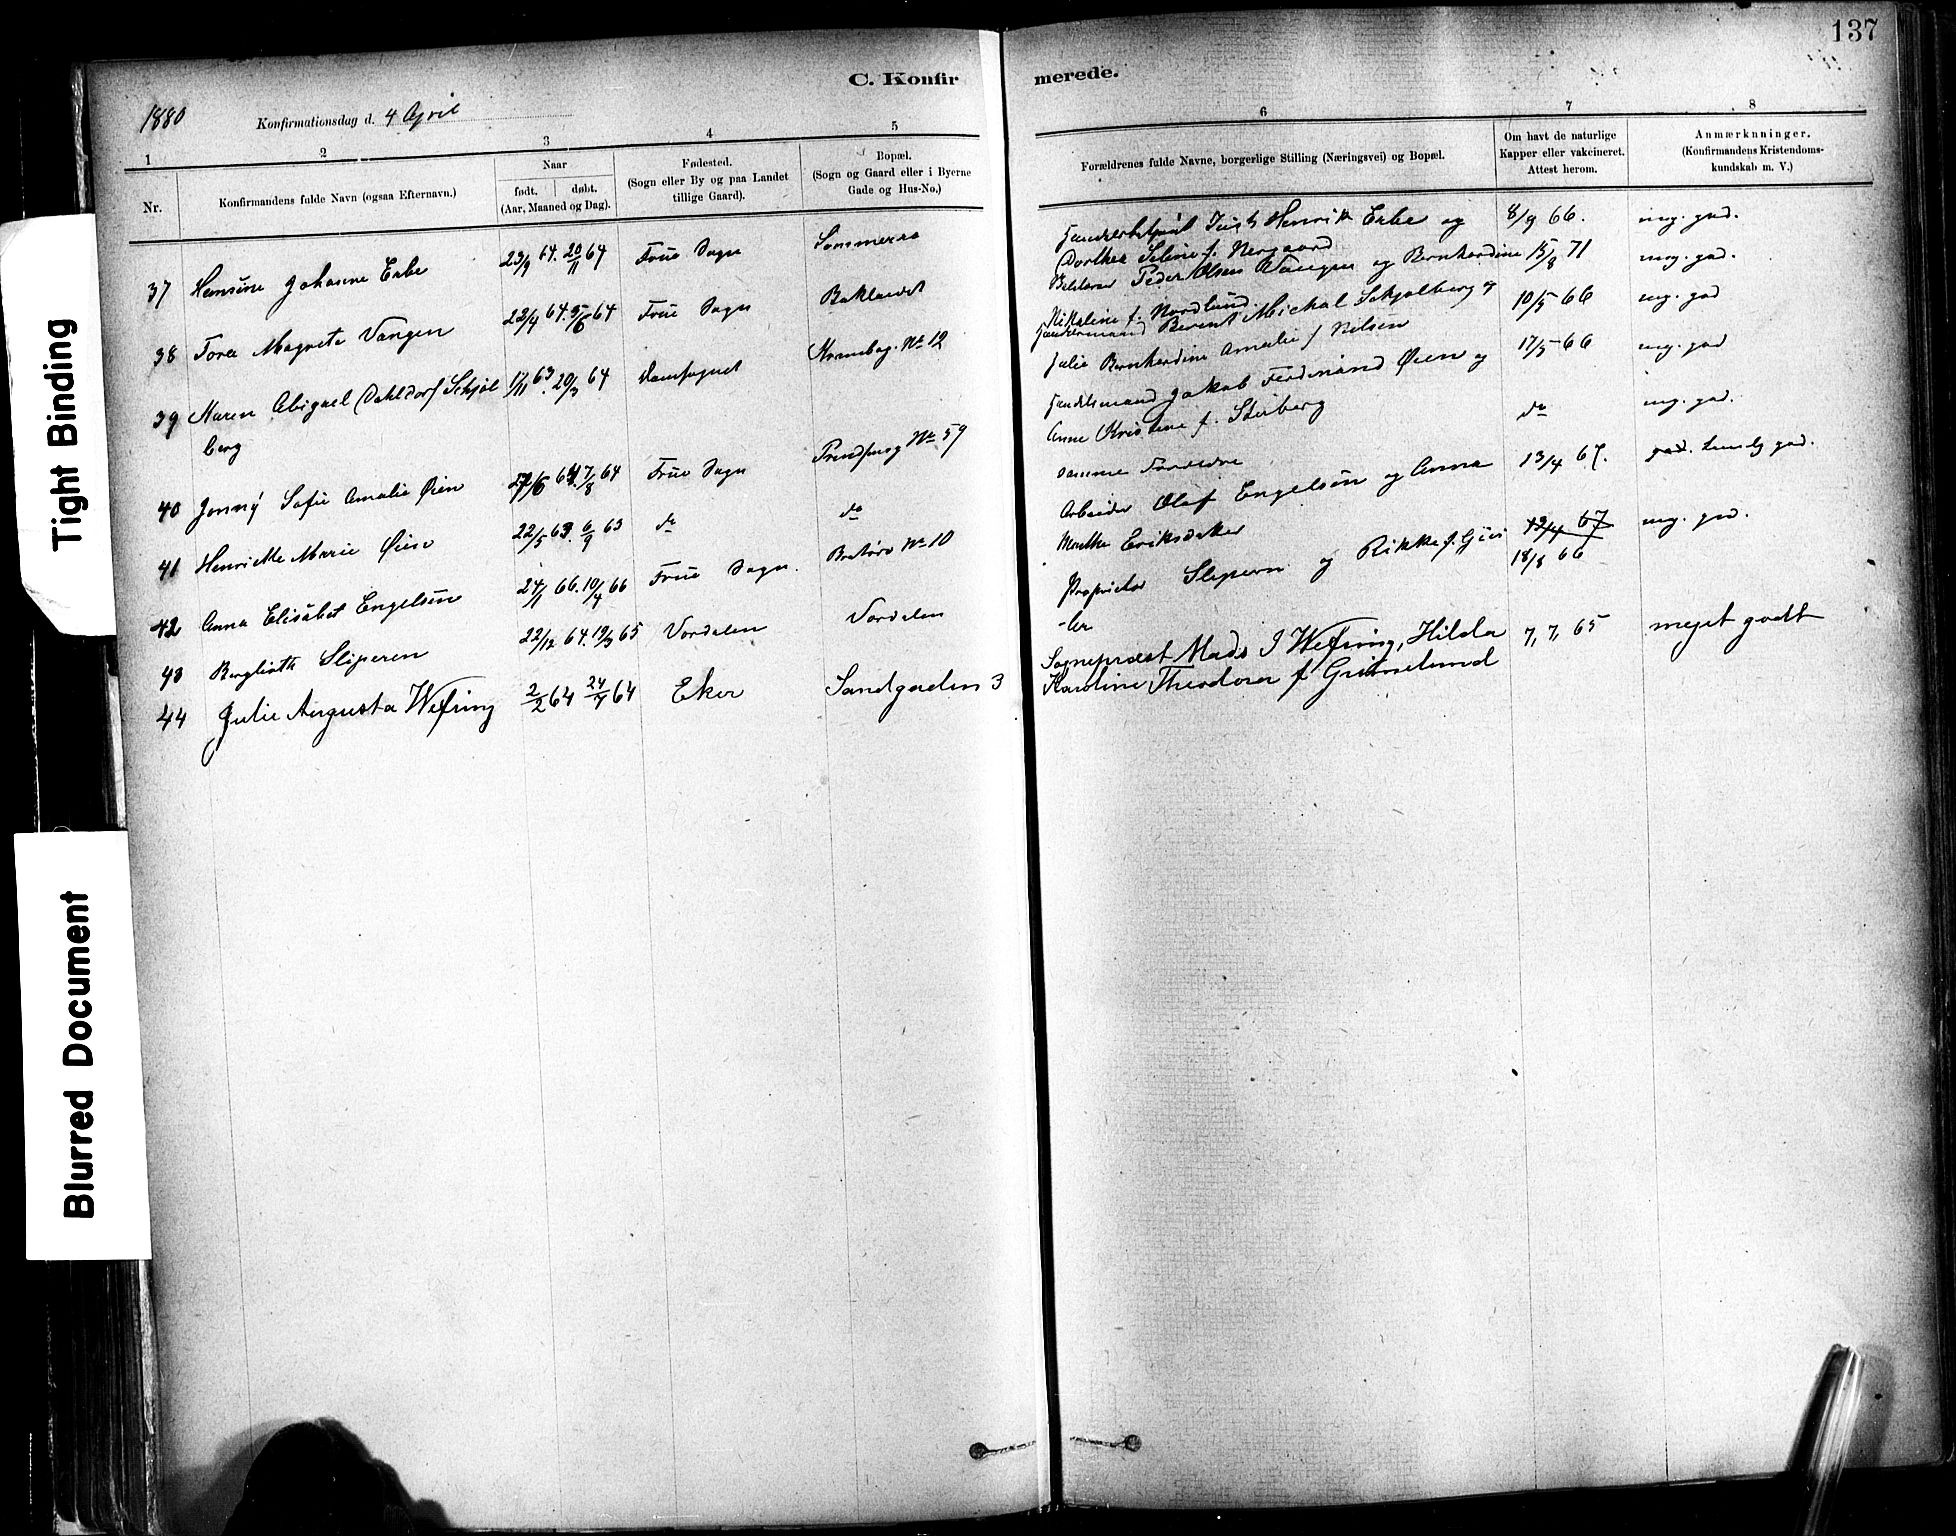 137
C. Konfirmerede.
1880 Konfirmationsdag d. 4 April
1 2 3 4 5 6 7 8
Nr.
Konfirmandens fulde Navn (ogsaa Efternavn.)
Naar
født. døbt.
(Aar, Maaned og Dag).
Fødested.
(Sogn eller By og paa Landet
tillige Gaard).
Bopæl.
(Sogn og Gaard eller i Byerne
Gade og Hus-No.)
Forældrenes fulde Navne, borgerlige Stilling (Næringsvei) og Bopæl.
Om havt de naturlige
Kapper eller vakcineret.
Attest herom.
Anmærknninger.
(Konfirmandens Kristendoms-
kundskab m. V.)
37 Hansine Johanne Erbe 23/9 64. 20/11 64 Frue Sogn Henrik Erbe og 8/9 66. mg. god.
Dorthea Seline f. Nergaard
38 Tora Magreta Vangen 22/4 64. 5/6 64 Frue Sogn Baklandet Peder Olsen Vangen og Bernhardine 15/8 71 mg. god.
Nikoline f. Nordlund
39 Maren Abigael Dahldorf Schjøl 17/11 63. 20/3 64 Domsognet Krambog. No 12 Berent Mickal Schjølberg og 10/5 66 mg. god
berg Julie Bernhardine Amalie f Nilsen
40 Jenny Sofie Amalie Øien 64. 7/8 64 Frue Sogn No 59 Handelsmand Jakob Ferdinand Øien og 17/5 66 mg. god
Anne Kristine f. Stenberg
41 Henriette Marie Øien 22/5 63. 6/9 63 do do samme Forældre do mg. god.
42 Anna Elisabet Engelsen 24/1 66. 10/4 66 Frue Sogn. Bratøra No 10 Arbeider Olaf Engelsen og Anna 13/4 67. god.
Marthe Eriksdatter
43 Bergliath Sliperen 22/12 64. 19/3 65 Vordalen Vordalen Proprietær Slipern og Rikke f. 13/4 67 mg. god.
18/8 66
44 Julie Augusta Wefring 2/2 64 24/4 64 Eker Sandgaden 3 Sogneprest Mads J Wefring, Hilda 7, 7, 65 meget godt
Karoline Theodora f Grimelund
Tight Binding
Blurred Document